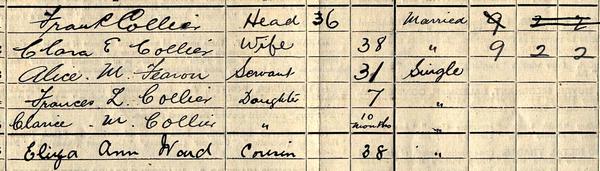 Frank Collier Head 36 Married 9 2 2
Clara E Collier Wife 38 " 9 2 2
Alice. M. Fearon Servant 31 Single
Frances L. Collier Daughter 7 "
Clarice M. Collier " 10 months "
Eliza Ann Ward Cousin 38 "